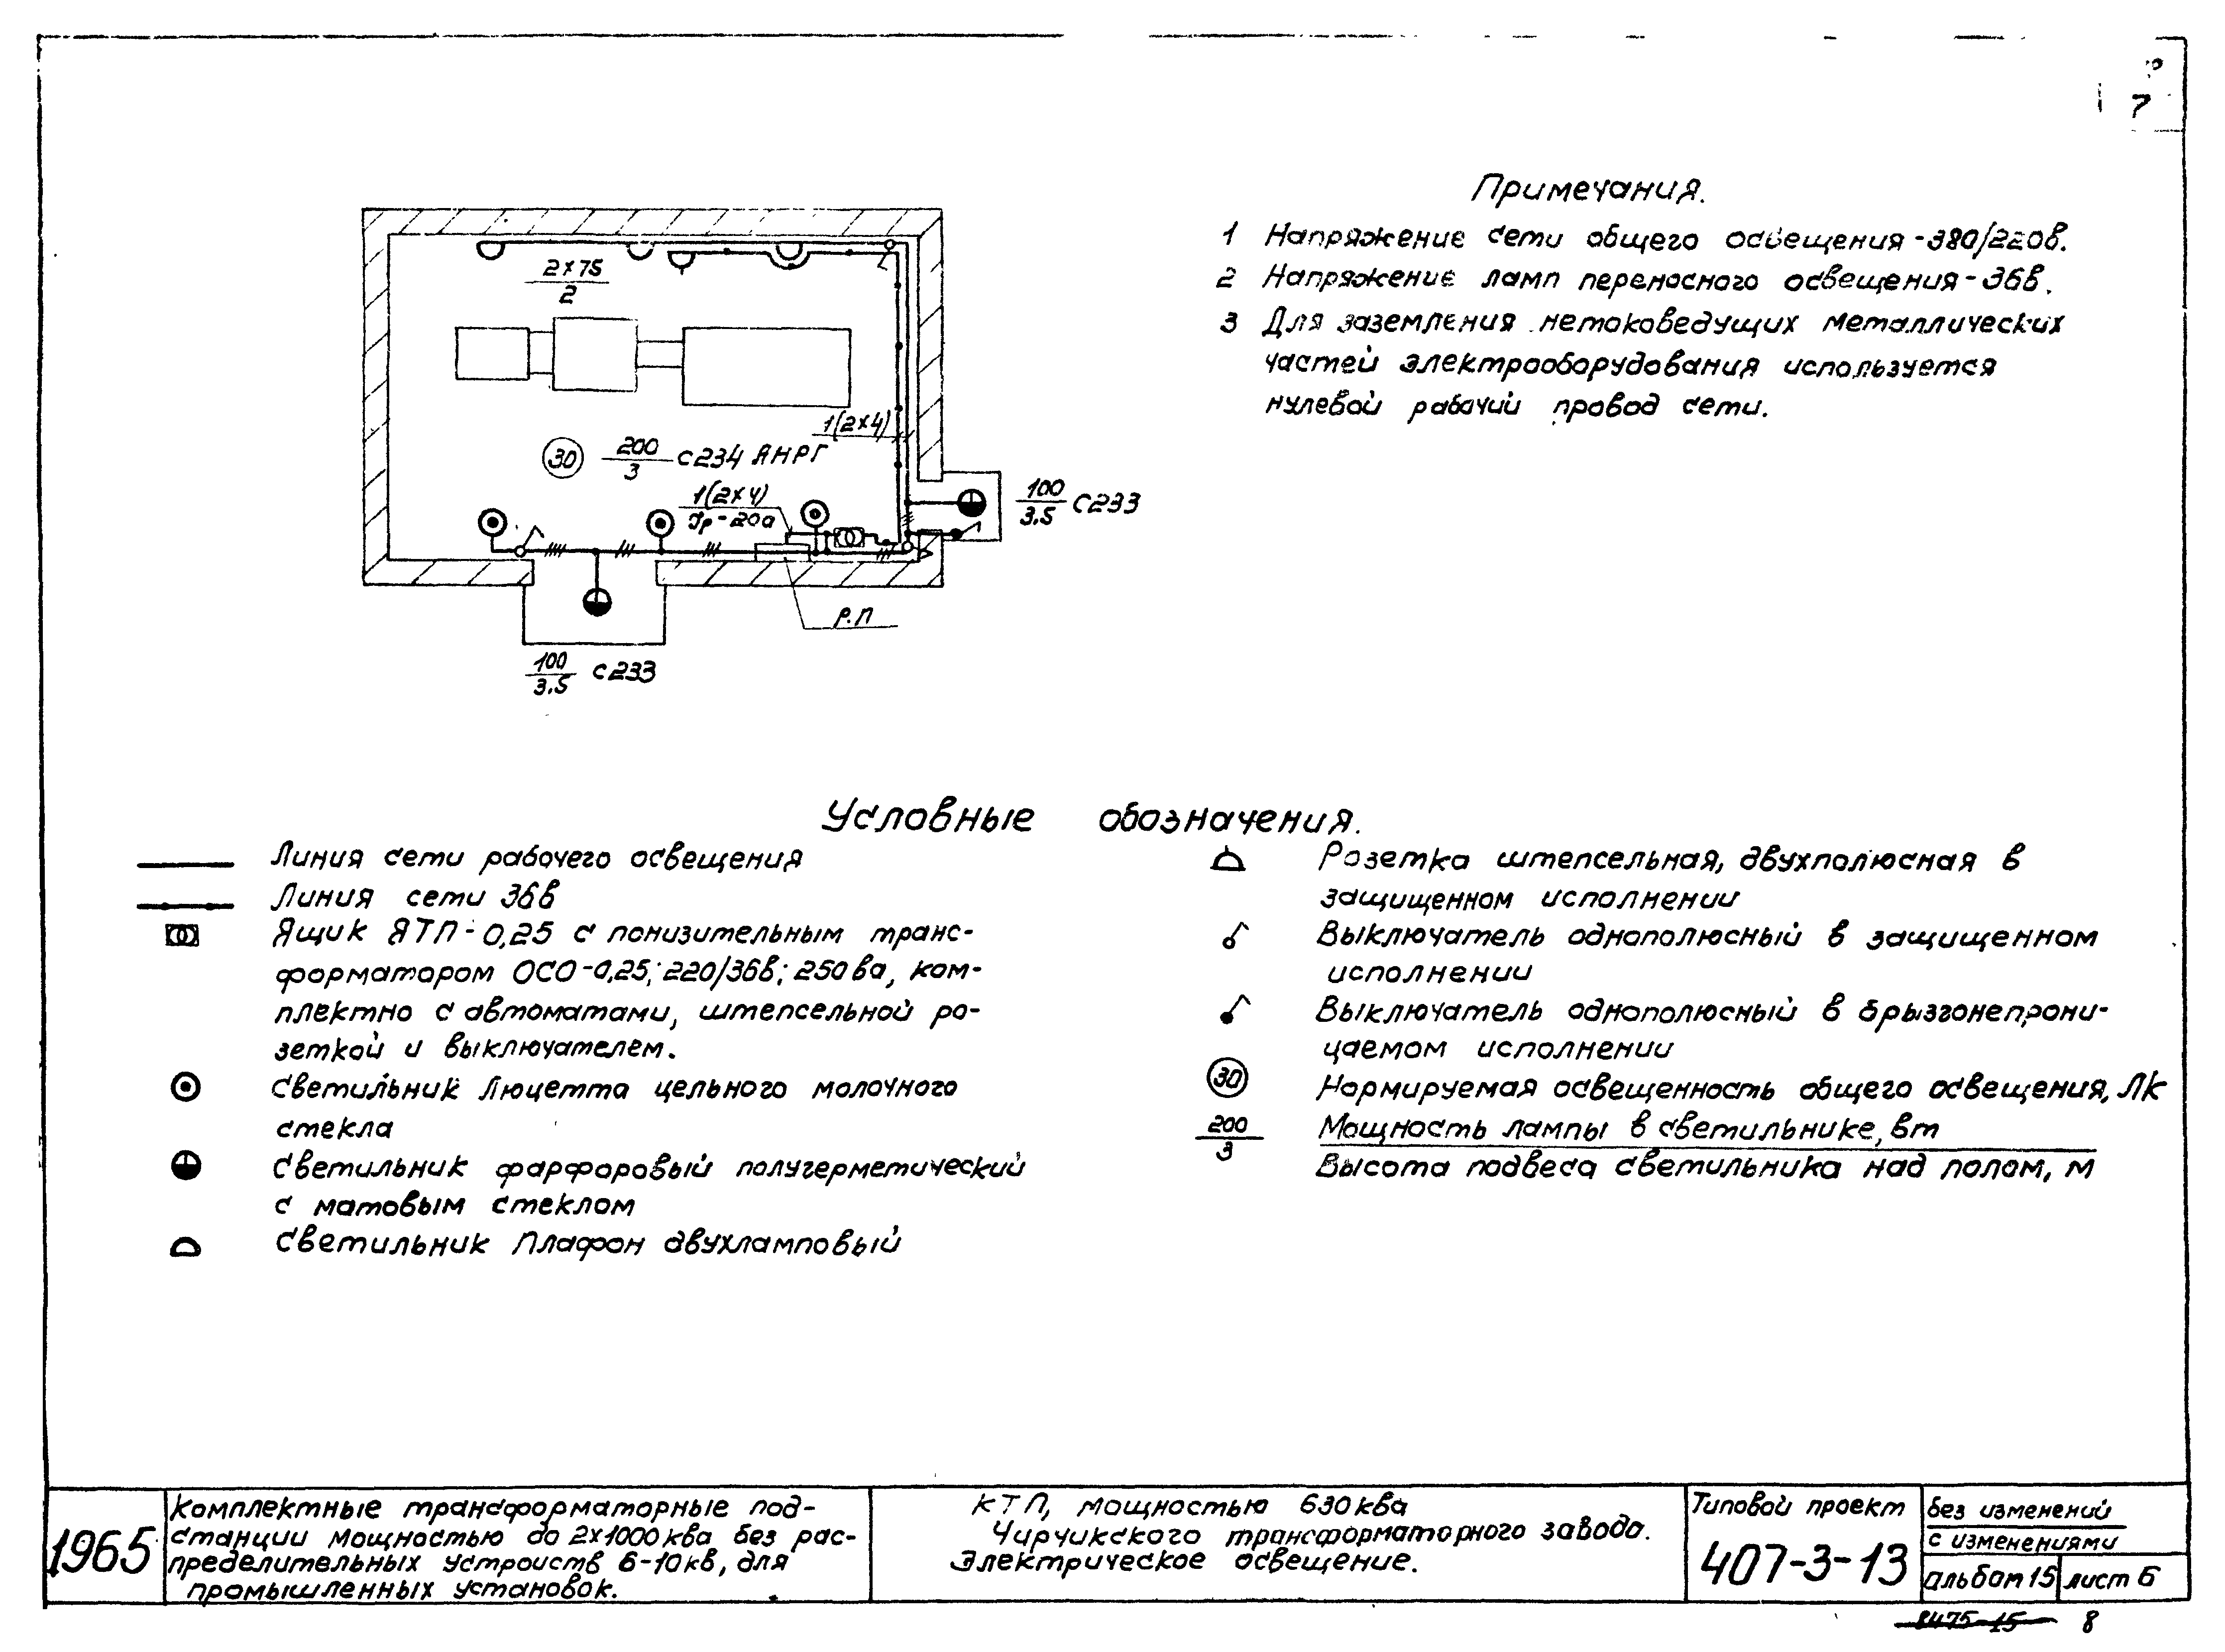 7
Примечания.
1 Напряжение сети общего освещения - 380/220в.
2 Напряжение ламп переносного освещения - 36в.
3 Для заземления нетоковедущих металлических
частей электрооборудования используется
нулевой рабочий провод сети.
2×75
2
1(2×4)
30
200
3
С234 АНРГ
1(2×4)
Jр-20а
100
3.5
С233
Р.П
100
3.5
С233
Условные обозначения.
Линия сети рабочего освещения
Линия сети 36в
Ящик ЯТП-0,25 с понизительным транс-
форматором ОСО-0,25; 220/36в; 250ва, ком-
плектно с автоматами, штепсельной ро-
зеткой и выключателем.
Светильник Люцетта цельного молочного
стекла
Светильник фарфоровый полугерметический
с матовым стеклом
Светильник Плафон двухламповый
Розетка штепсельная, двухполюсная в
защищенном исполнении
Выключатель однополюсный в защищенном
исполнении
Выключатель однополюсный в брызгонепрони-
цаемом исполнении
30
Нормируемая освещенность общего освещения, Лк
200
3
Мощность лампы в светильнике, вт
Высота подвеса светильника над полом, м
1965
Комплектные трансформаторные под-
станции мощностью до 2×1000 ква без рас-
пределительных устроиств 6-10 кв, для
промышленных установок.
КТП, мощностью 630 ква
Чирчикского трансформаторного завода.
Электрическое освещение.
Типовой проект
407-3-13
без изменений
с изменениями
альбом 15
лист 6
8475-15
8